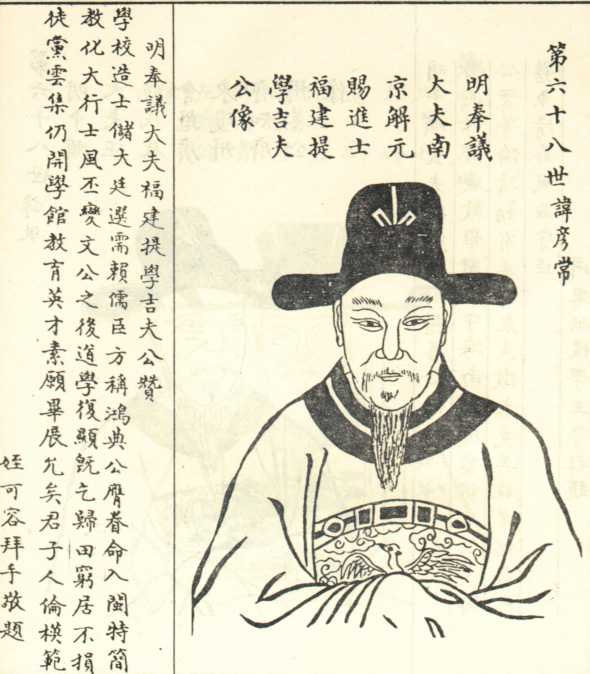 第六十八世諱彦常
明奉議
大夫南
京解元
賜進士
福建提
學吉夫
公像
明奉議大夫福建提學吉夫公贊
學校造士儲大廷選需賴儒臣方稱鴻典公膺眷命入閩特簡
教化大行士風丕變文公之後道學復顯旣乞歸田窮居不損
徒黨雲集仍開學館教育英才素願畢展允矣君子人倫模範
姪可容拜手敬題